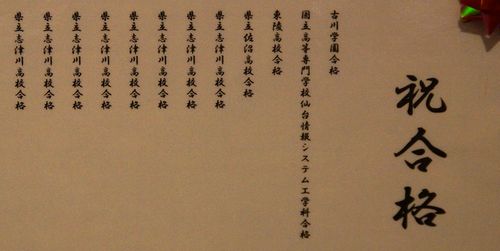 祝合格
古川学園合格
国立高等専門学校仙台情報システム工学科合格
東陵高校合格
県立佐沼高校合格
県立志津川高校合格
県立志津川高校合格
県立志津川高校合格
県立志津川高校合格
県立志津川高校合格
県立志津川高校合格
県立志津川高校合格
県立志津川高校合格